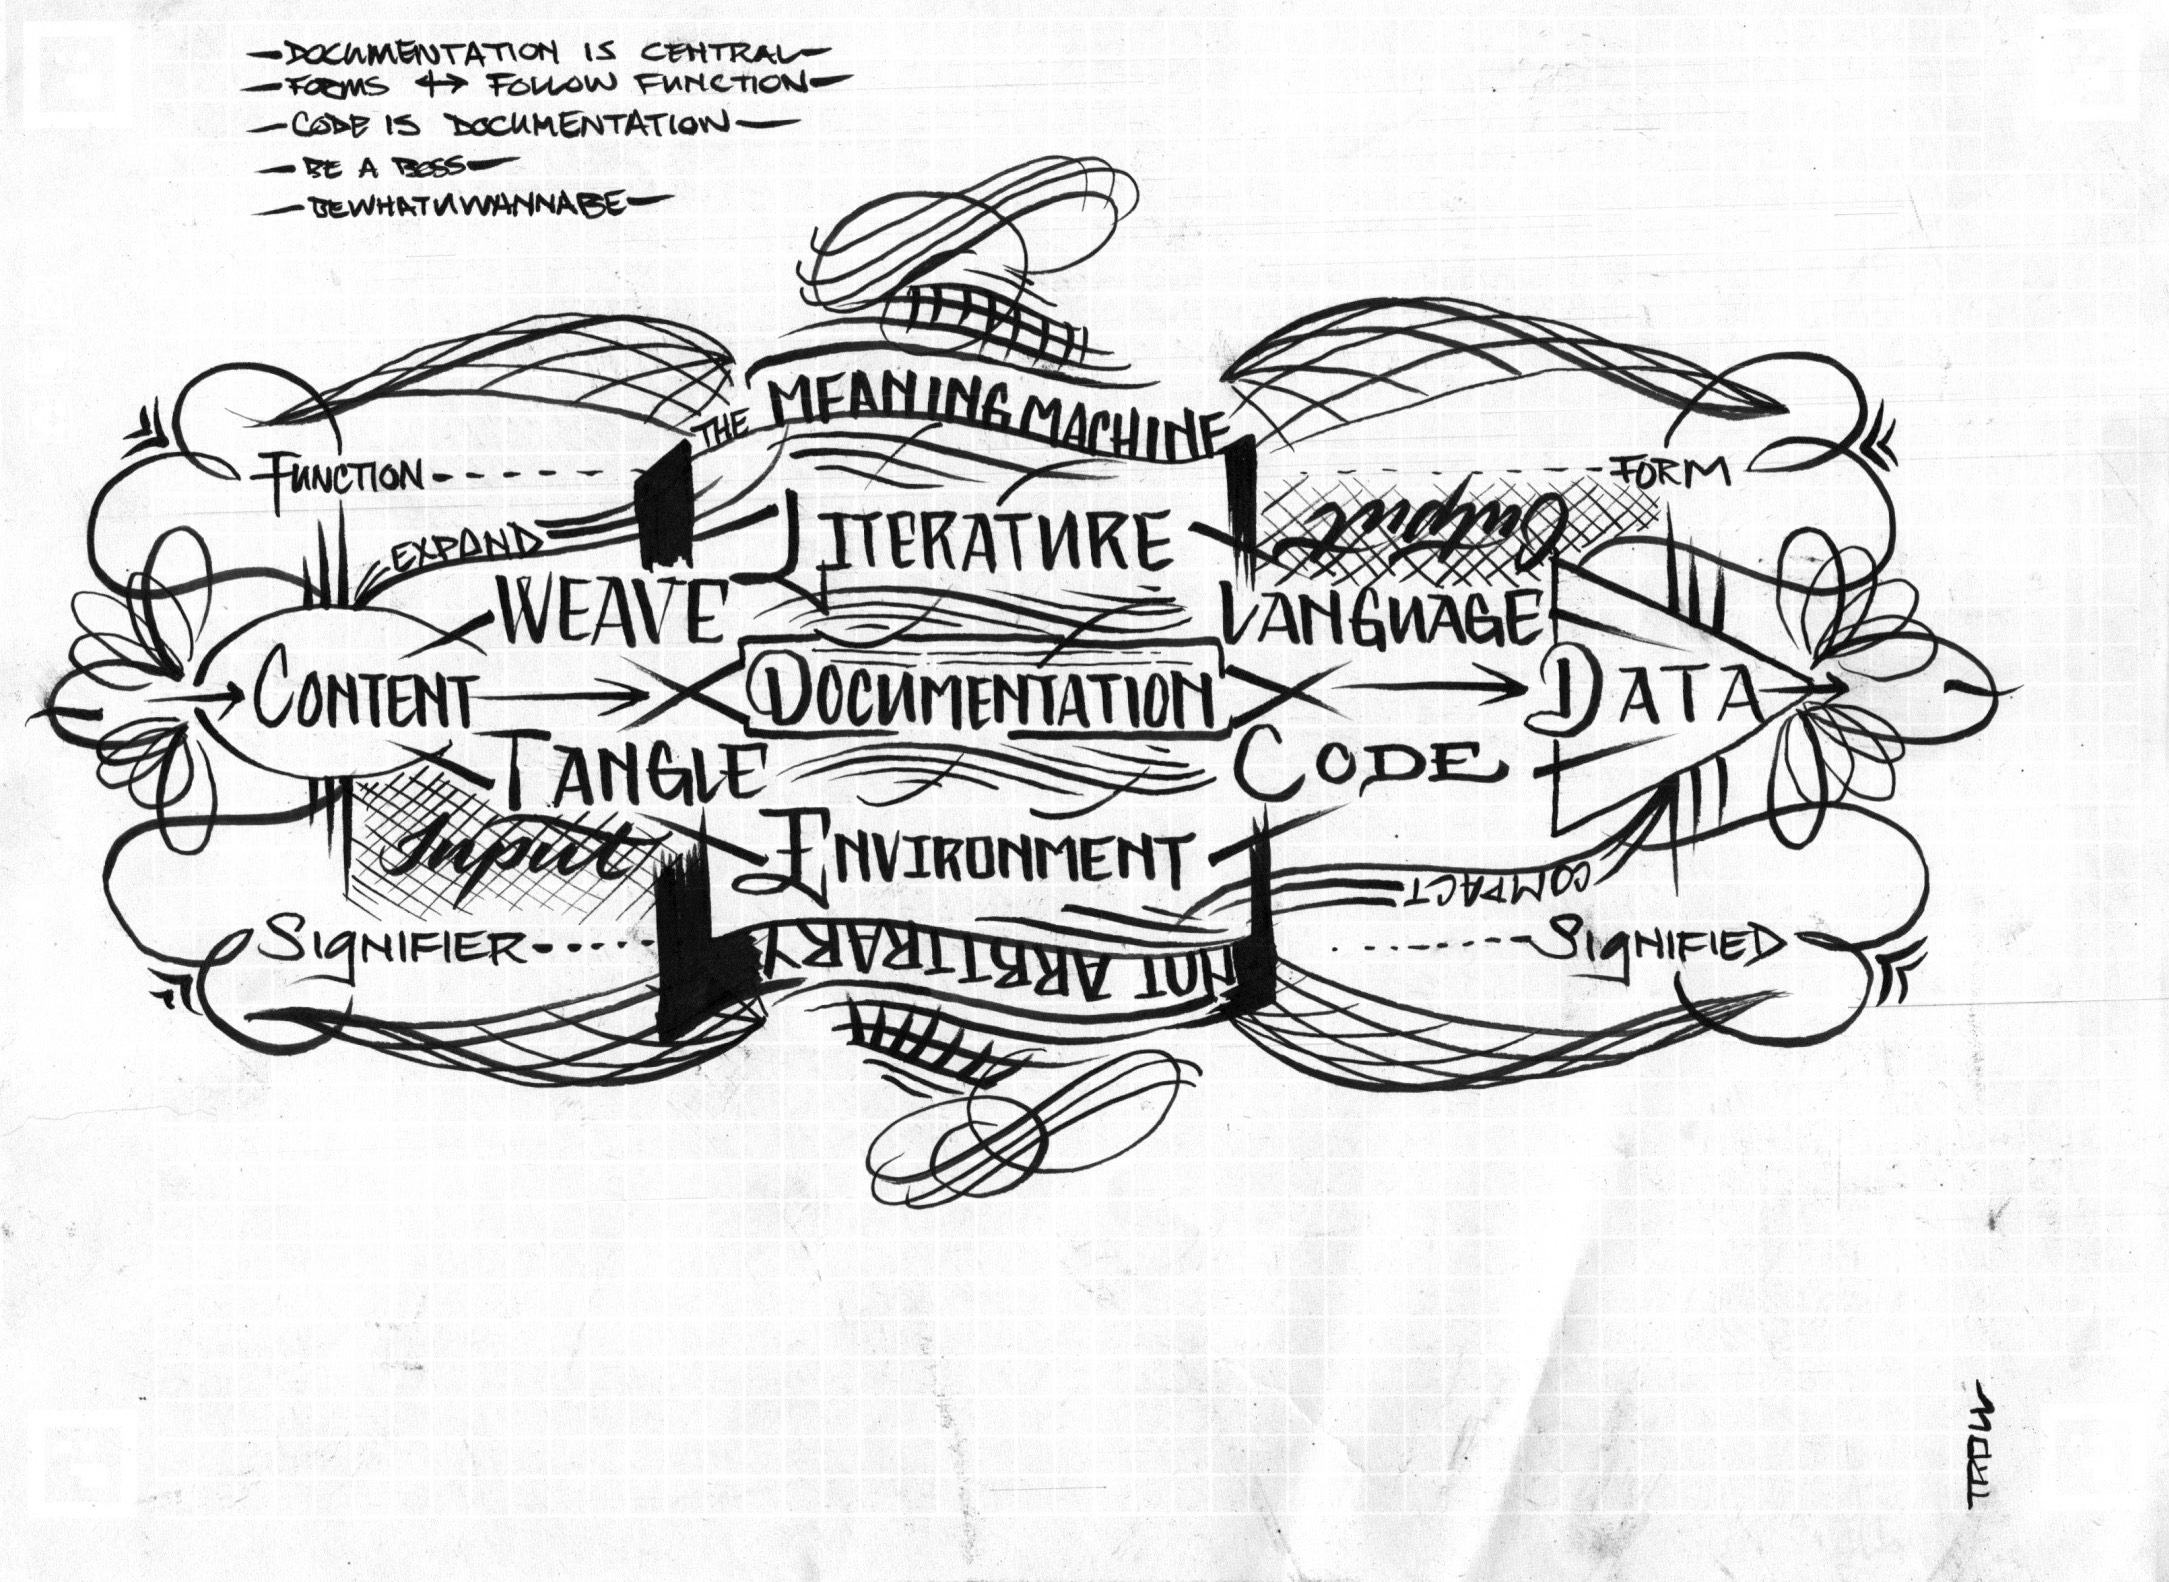 —DOCUMENTATION IS CENTRAL—
—FORMS ↔ FOLLOW FUNCTION—
—CODE IS DOCUMENTATION—
—BE A BOSS—
—BEWHATUWANNABE—
THE MEANING MACHINE
FUNCTION
FORM
Output
EXPAND
LITERATURE
WEAVE
LANGUAGE
→ CONTENT → DOCUMENTATION → DATA →
TANGLE
CODE
Input
ENVIRONMENT
COMPACT
SIGNIFIER
SIGNIFIED
NOT ARBITRARY